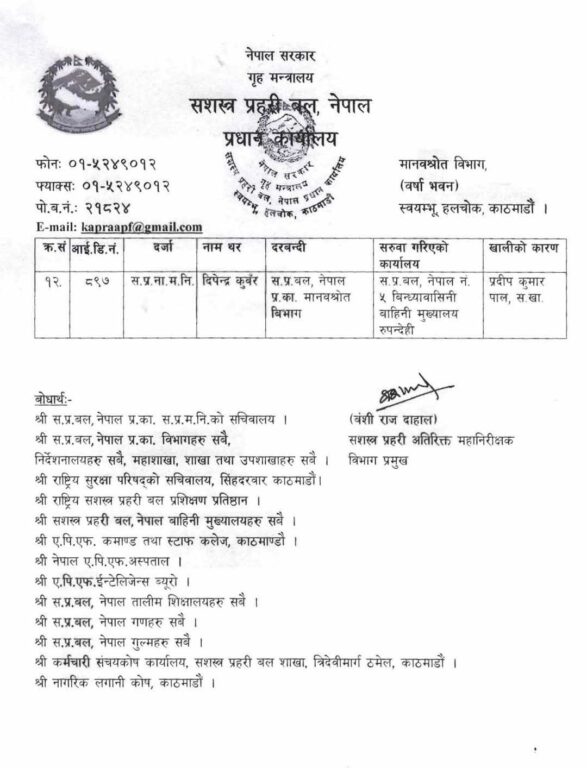 नेपाल सरकार
गृह मन्त्रालय
सशस्त्र प्रहरी बल, नेपाल
प्रधान कार्यालय
नेपाल सरकार
गृह मन्त्रालय
सशस्त्र प्रहरी बल, नेपाल प्रधान कार्यालय
स्वयम्भू, हलचोक, काठमाडौं
फोनः ०१-५२४९०१२
मानवश्रोत विभाग,
फ्याक्सः ०१-५२४९०१२
(वर्षा भवन)
पो.ब.नं.: २१८२४
स्वयम्भू, हलचोक, काठमाडौं ।
E-mail: kapraapf@gmail.com
क्र.सं आई.डि.नं. दर्जा नाम थर दरबन्दी सरुवा गरिएको कार्यालय खालीको कारण
१२. ८९७ स.प्र.ना.म.नि. दिपेन्द्र कुवँर स.प्र.बल, नेपाल स.प्र.बल, नेपाल नं. प्रदीप कुमार
प्र.का. मानवश्रोत ५ बिन्ध्यावासिनी पाल, स.खा.
विभाग बाहिनी मुख्यालय
रुपन्देही
बोधार्थः-
श्री स.प्र.बल, नेपाल प्र.का. स.प्र.म.नि.को सचिवालय ।
(वंशी राज दाहाल)
श्री स.प्र.बल, नेपाल प्र.का. विभागहरु सबै,
सशस्त्र प्रहरी अतिरिक्त महानिरीक्षक
निर्देशनालयहरु सबै, महाशाखा, शाखा तथा उपशाखाहरु सबै ।
विभाग प्रमुख
श्री राष्ट्रिय सुरक्षा परिषद्को सचिवालय, सिंहदरवार काठमाडौं।
श्री राष्ट्रिय सशस्त्र प्रहरी बल प्रशिक्षण प्रतिष्ठान ।
श्री सशस्त्र प्रहरी बल, नेपाल बाहिनी मुख्यालयहरु सबै ।
श्री ए.पि.एफ. कमाण्ड तथा स्टाफ कलेज, काठमाण्डौं ।
श्री नेपाल ए.पि.एफ.अस्पताल ।
श्री ए.पि.एफ.ईन्टेलिजेन्स ब्यूरो ।
श्री स.प्र.बल, नेपाल तालीम शिक्षालयहरु सबै ।
श्री स.प्र.बल, नेपाल गणहरु सबै ।
श्री स.प्र.बल, नेपाल गुल्महरु सबै ।
श्री कर्मचारी संचयकोष कार्यालय, सशस्त्र प्रहरी बल शाखा, त्रिदेवीमार्ग ठमेल, काठमाडौं ।
श्री नागरिक लगानी कोष, काठमाडौं ।